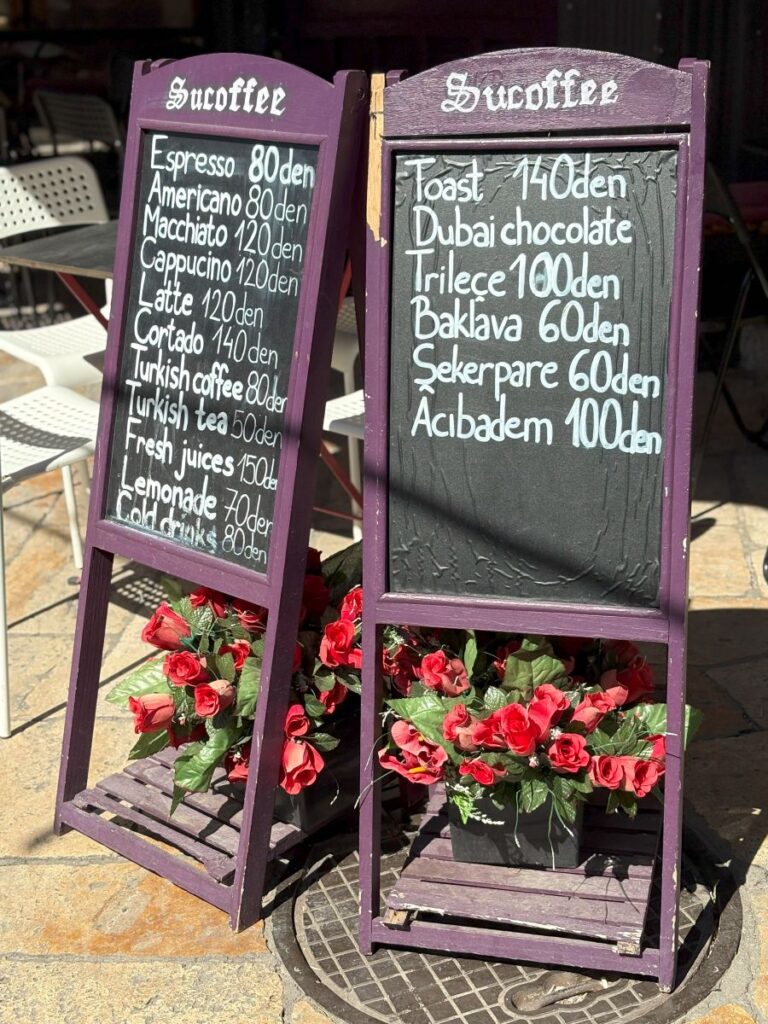 Sucoffee
Espresso 80den
Americano 80den
Macchiato 120den
Cappucino 120den
Latte 120den
Cortado 140den
Turkish coffee 80den
Turkish tea 50den
Fresh juices 150den
Lemonade 70den
Cold drinks 80den
Sucoffee
Toast 140den
Dubai chocolate
Trileçe 100den
Baklâva 60den
Şekerpare 60den
Âcıbadem 100den